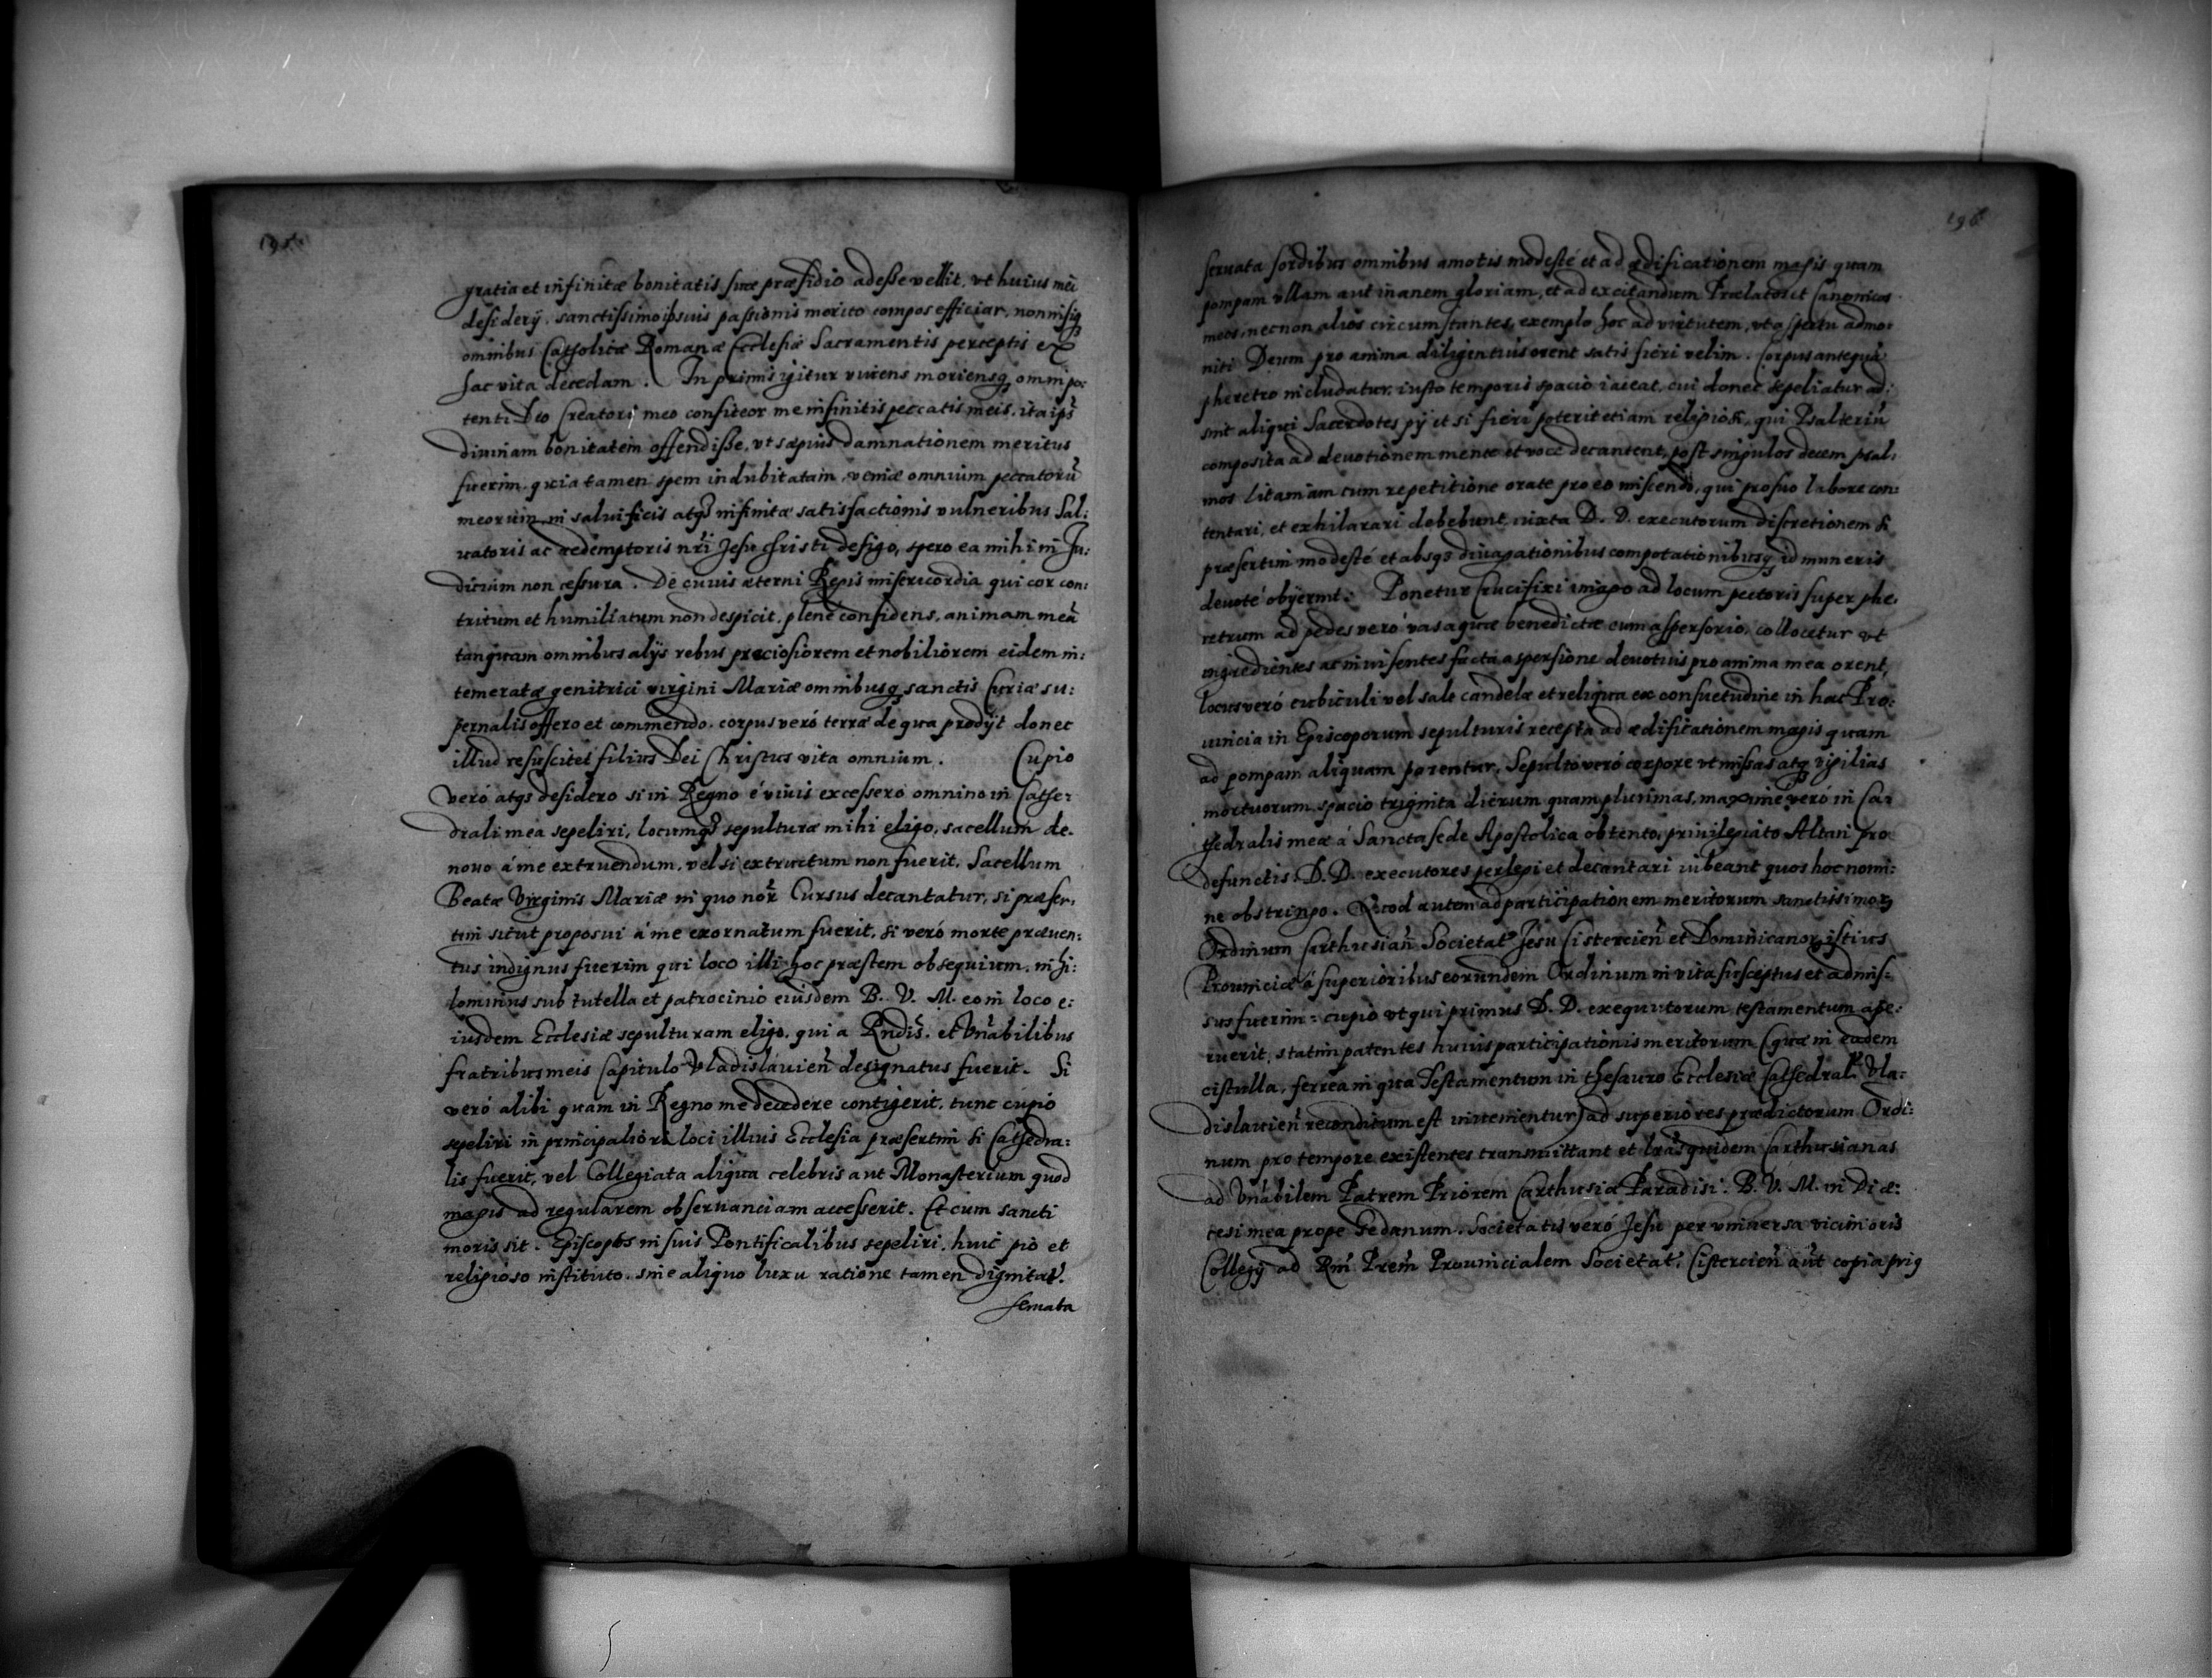 195
gratia et infinitæ bonitatis suæ præsidio adesse vellit, vt huius mei
desiderÿ, sanctissimo ipsuis passionis merito compos efficiar, non nisiq
omnibus Catholicæ Romanæ Ecclesiæ Sacramentis perceptis ex
hac vita decedam. In primis igitur viuens moriensq omnipo:
tenti Deo Creatori meo confiteor me infinitis peccatis meis, ita ips̃
diuinam bonitatem offendisse, vt sæpius damnationem meritus
fuerim, quia tamen spem indubitatam, veniæ omnium peccatorũ
meorum, in saluificis atq3 infinitæ satisfactionis vulneribus Sal:
uatoris ac redemptoris nr̃i Jesu Christi defigo, spero ea mihi in Ju:
dicium non cessura. De cuius æterni Regis misericordia qui cor con:
tritum et humiliatum non despicit, plene confidens, animam meã
tanquam omnibus alÿs rebus preciosiorem et nobiliorem eidem in:
temeratæ genitrici virgini Mariæ omnibusq sanctis Curiæ su:
pernalis offero et commendo, corpus veró terræ de qua prodÿt donec
illud resuscitet filius Dei Christus vita omnium. Cupio
veró atq3 desidero si in Regno é viuis excessero omnino in Cathe:
drali mea sepeliri, locumq3 sepulturæ mihi eligo, sacellum de
nouo á me extruendum, vel si extructum non fuerit, Sacellum
Beatæ Virginis Mariæ in quo nor̃ Cursus decantatur, si præser,
tim sicut proposui á me exornatum fuerit, si veró morte præuen:
tus indignus fuerim qui loco illi hoc præstem obsequium, nihi:
lominus sub tutella et patrocinio eiusdem B. V. M. eo in loco e:
iusdem Ecclesiæ sepulturam eligo, qui a Rndis̃. et Vnãbilibus
fratribus meis Capitulo Vladislauień designatus fuerit. Si
veró alibi quam in Regno me decedere contigerit, tunc cupio
sepeliri in principaliori loci illius Ecclesia præsertim si Cathedra:
lis fuerit, vel Collegiata aliqua celebris aut Monasterium quod
magis ad regularem obseruanciam accesserit. Et cum sancti
moris sit. Episcopos in suis Pontificalibus sepeliri, huic pio et
religioso instituto, sine aliquo luxu ratione tamen dignitat̃.
seruata
196
seruata sordibus omnibus amotis modesté et ad ædificationem magis quam
pompam vllam aut inanem gloriam, et ad excitandum Prælatos et Canonicos
meos, nec non alios circumstantes, exemplo hoc ad virtutem, vt aspectu admo:
niti Deum pro anima diligentius orent satis fieri velim. Corpus antequã
pheretro includatur, iusto temporis spacio iaceat, cui donec sepeliatur ad:
sint aliqui Sacerdotes pÿ et si fieri poterit etiam religiosi, qui Psalteriũ
composita ad deuotionem mente et voce decantent, post singulos decem psal:
mos Litaniam cum repetitione orate pro eo miscendo, qui pro suo labore con:
tentari, et exhilarari debebunt iuxta D. D. executorum discretionem si
præsertim modesté et absq3 diuagationibus compotationibusq id muneris
deuoté obÿerint. Ponetur Crucifixi imago ad locum pectoris super phe:
retrum ad pedes veró vas aquæ benedictæ cum aspersorio, collocetur vt
ingredientes ac inuisentes facta aspersione deuotius pro anima mea orent,
locus veró cubiculi vel sale candelæ et reliqua ex consuetudine in hac Pro:
uincia in Episcoporum sepulturis recepta ad ædificationem magis quam
ad pompam aliquam parentur. Sepulto veró corpore vt missas atq vigilias
mortuorum, spacio triginta dierum quam plurimas, maxime veró in Ca:
thedralis meæ á Sancta sede Apostolica obtento, priuilegiato Altari pro
defunctis D. D. executores perlegi et decantari iubeant quos hoc nomi:
ne obstringo. Quod autem ad participationem meritorum sanctissimor
Ordinum Carthusiań Societat̃ Jesu Cistercień et Dominicanor istius
Prouinciæ á superioribus eorundem Ordinum in vita susceptus et admis:
sus fuerim: cupio vt qui primus D. D. exequutorum testamentum ape:
ruerit, statim patentes huius participationis meritorum (quæ in eadem
cistulla, ferrea in qua Testamentum in thesauro Ecclesiæ Cathedral̃ Vla:
dislauień reconditum est inuenientur) ad superiores prædictorum Ordi:
num pro tempore existentes transmittant et lrãs quidem Carthusianas
ad Vnãbilem Patrem Priorem Carthusiæ Paradisi B. V. M. in Diæ:
cesi mea prope Gedanum. Societatis veró Jesu per vniuersa vicinioris
Collegÿ ad Rm̃ Prem̃ Prouincialem Societat̃. Cistercień aũt copia priq